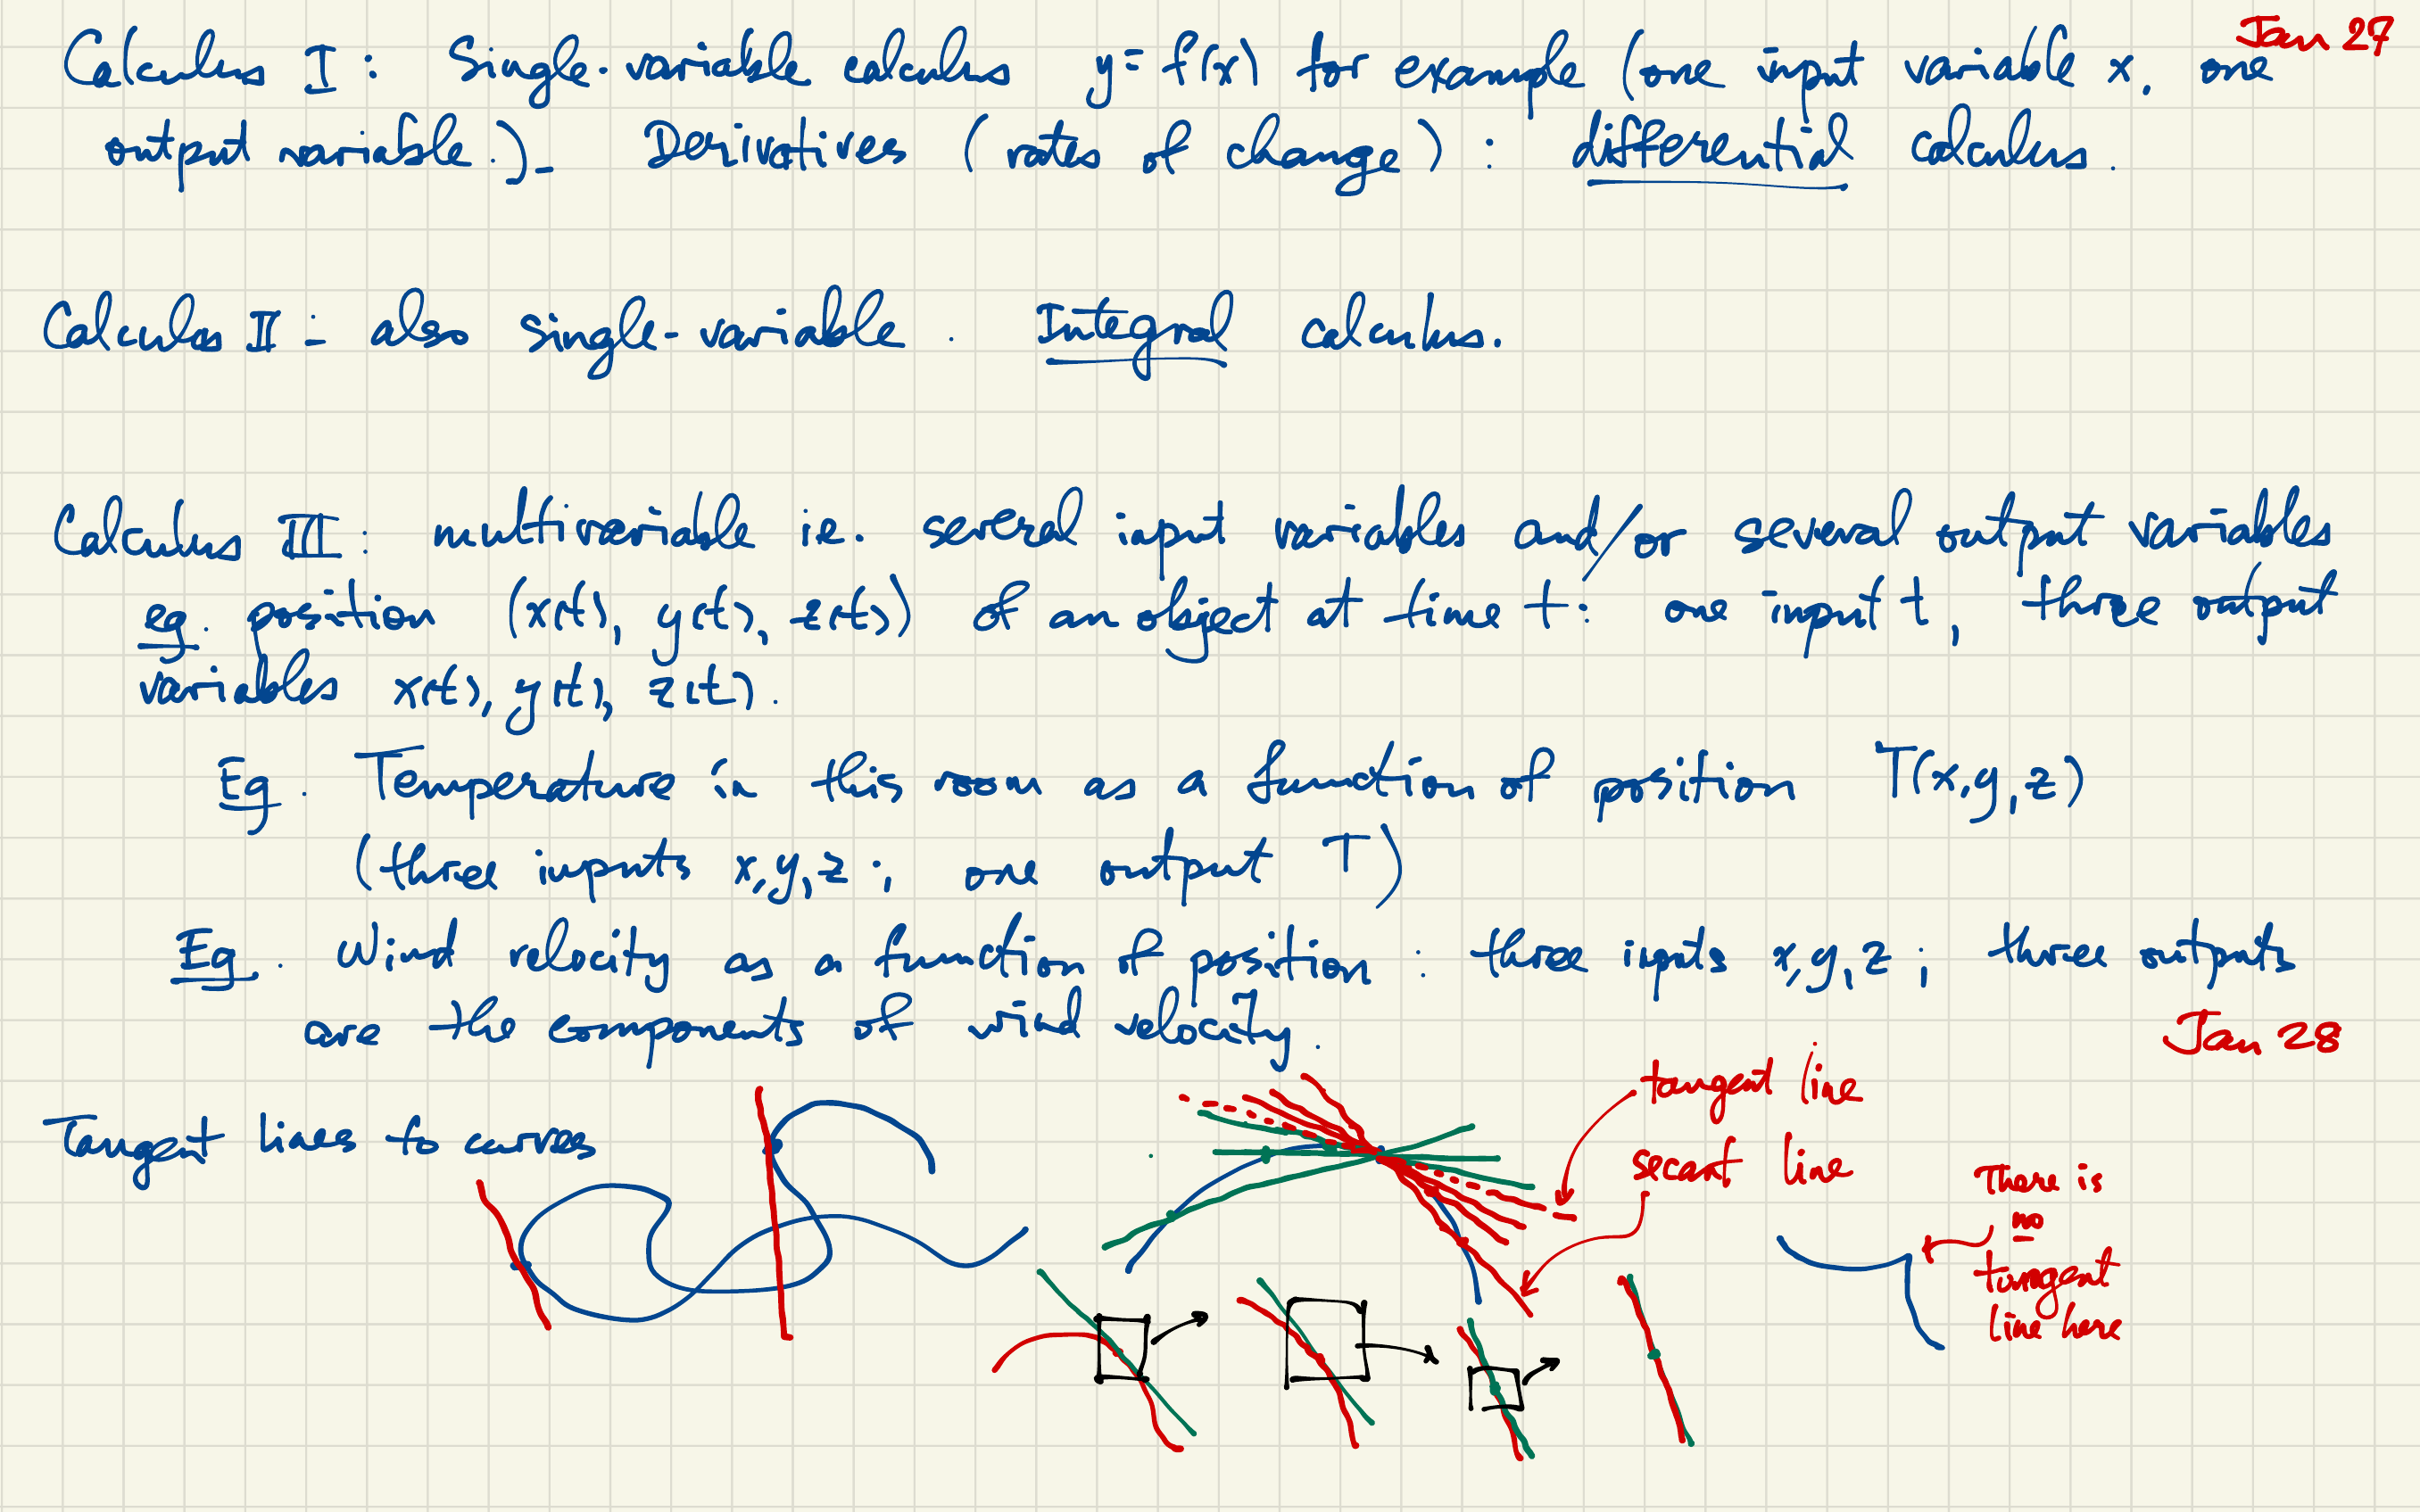 Jan 27
Calculus I : Single-variable calculus y = f(x) for example (one input variable x, one
output variable.). Derivatives (rates of change) : differential calculus.
Calculus II : also single-variable. Integral calculus.
Calculus III : multivariable i.e. several input variables and/or several output variables
eg. position (x(t), y(t), z(t)) of an object at time t : one input t, three output
variables x(t), y(t), z(t).
Eg. Temperature in this room as a function of position T(x,y,z)
(three inputs x,y,z ; one output T)
Eg. Wind velocity as a function of position : three inputs x,y,z ; three outputs
are the components of wind velocity.
Jan 28
Tangent lines to curves
tangent line
secant line
There is
no
tangent
line here